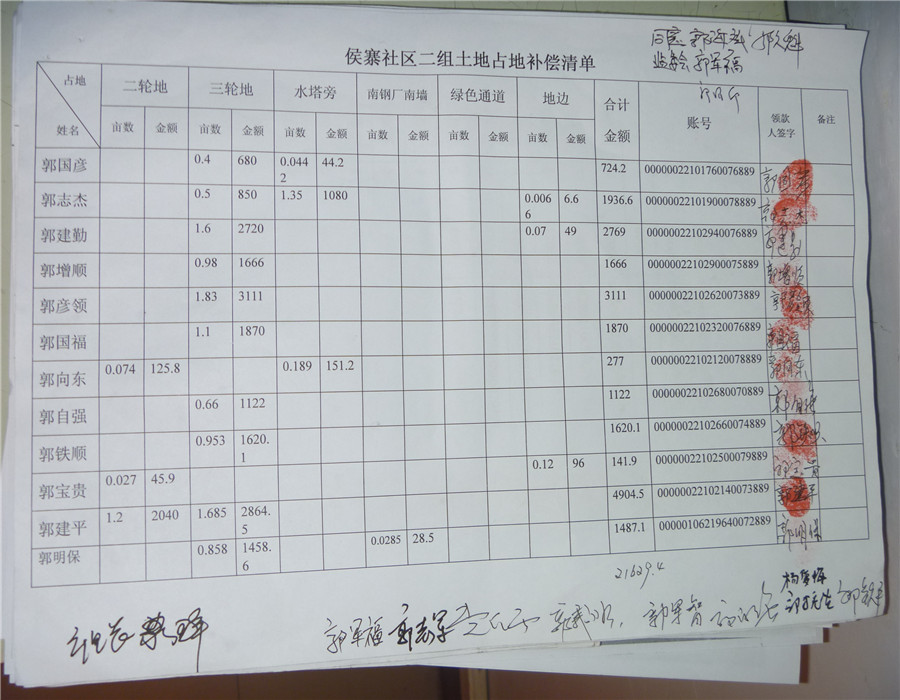 同意 郭
监委会 郭军福
侯寨社区二组土地占地补偿清单
占地 姓名 二轮地 三轮地 水塔旁 南钢厂南墙 绿色通道 地边 合计金额 账号 领款人签字 备注
亩数 金额 亩数 金额 亩数 金额 亩数 金额 亩数 金额 亩数 金额
郭国彦 0.4 680 0.0442 44.2 724.2 00000022101760076889
郭志杰 0.5 850 1.35 1080 0.0066 6.6 1936.6 00000022101900078889 郭志杰
郭建勤 1.6 2720 0.07 49 2769 00000022102940076889
郭增顺 0.98 1666 1666 00000022102900075889 郭增顺
郭彦领 1.83 3111 3111 00000022102620073889
郭国福 1.1 1870 1870 00000022102320076889 郭国福
郭向东 0.074 125.8 0.189 151.2 277 00000022102120078889 郭向东
郭自强 0.66 1122 1122 00000022102680070889 郭自强
郭铁顺 0.953 1620.1 1620.1 00000022102660074889 郭铁顺
郭宝贵 0.027 45.9 0.12 96 141.9 00000022102500079889
郭建平 1.2 2040 1.685 2864.5 4904.5 00000022102140073889 郭建平
郭明保 0.858 1458.6 0.0285 28.5 1487.1 00000106219640072889 郭明保
21629.4
郭军福 郭志军 郭军智